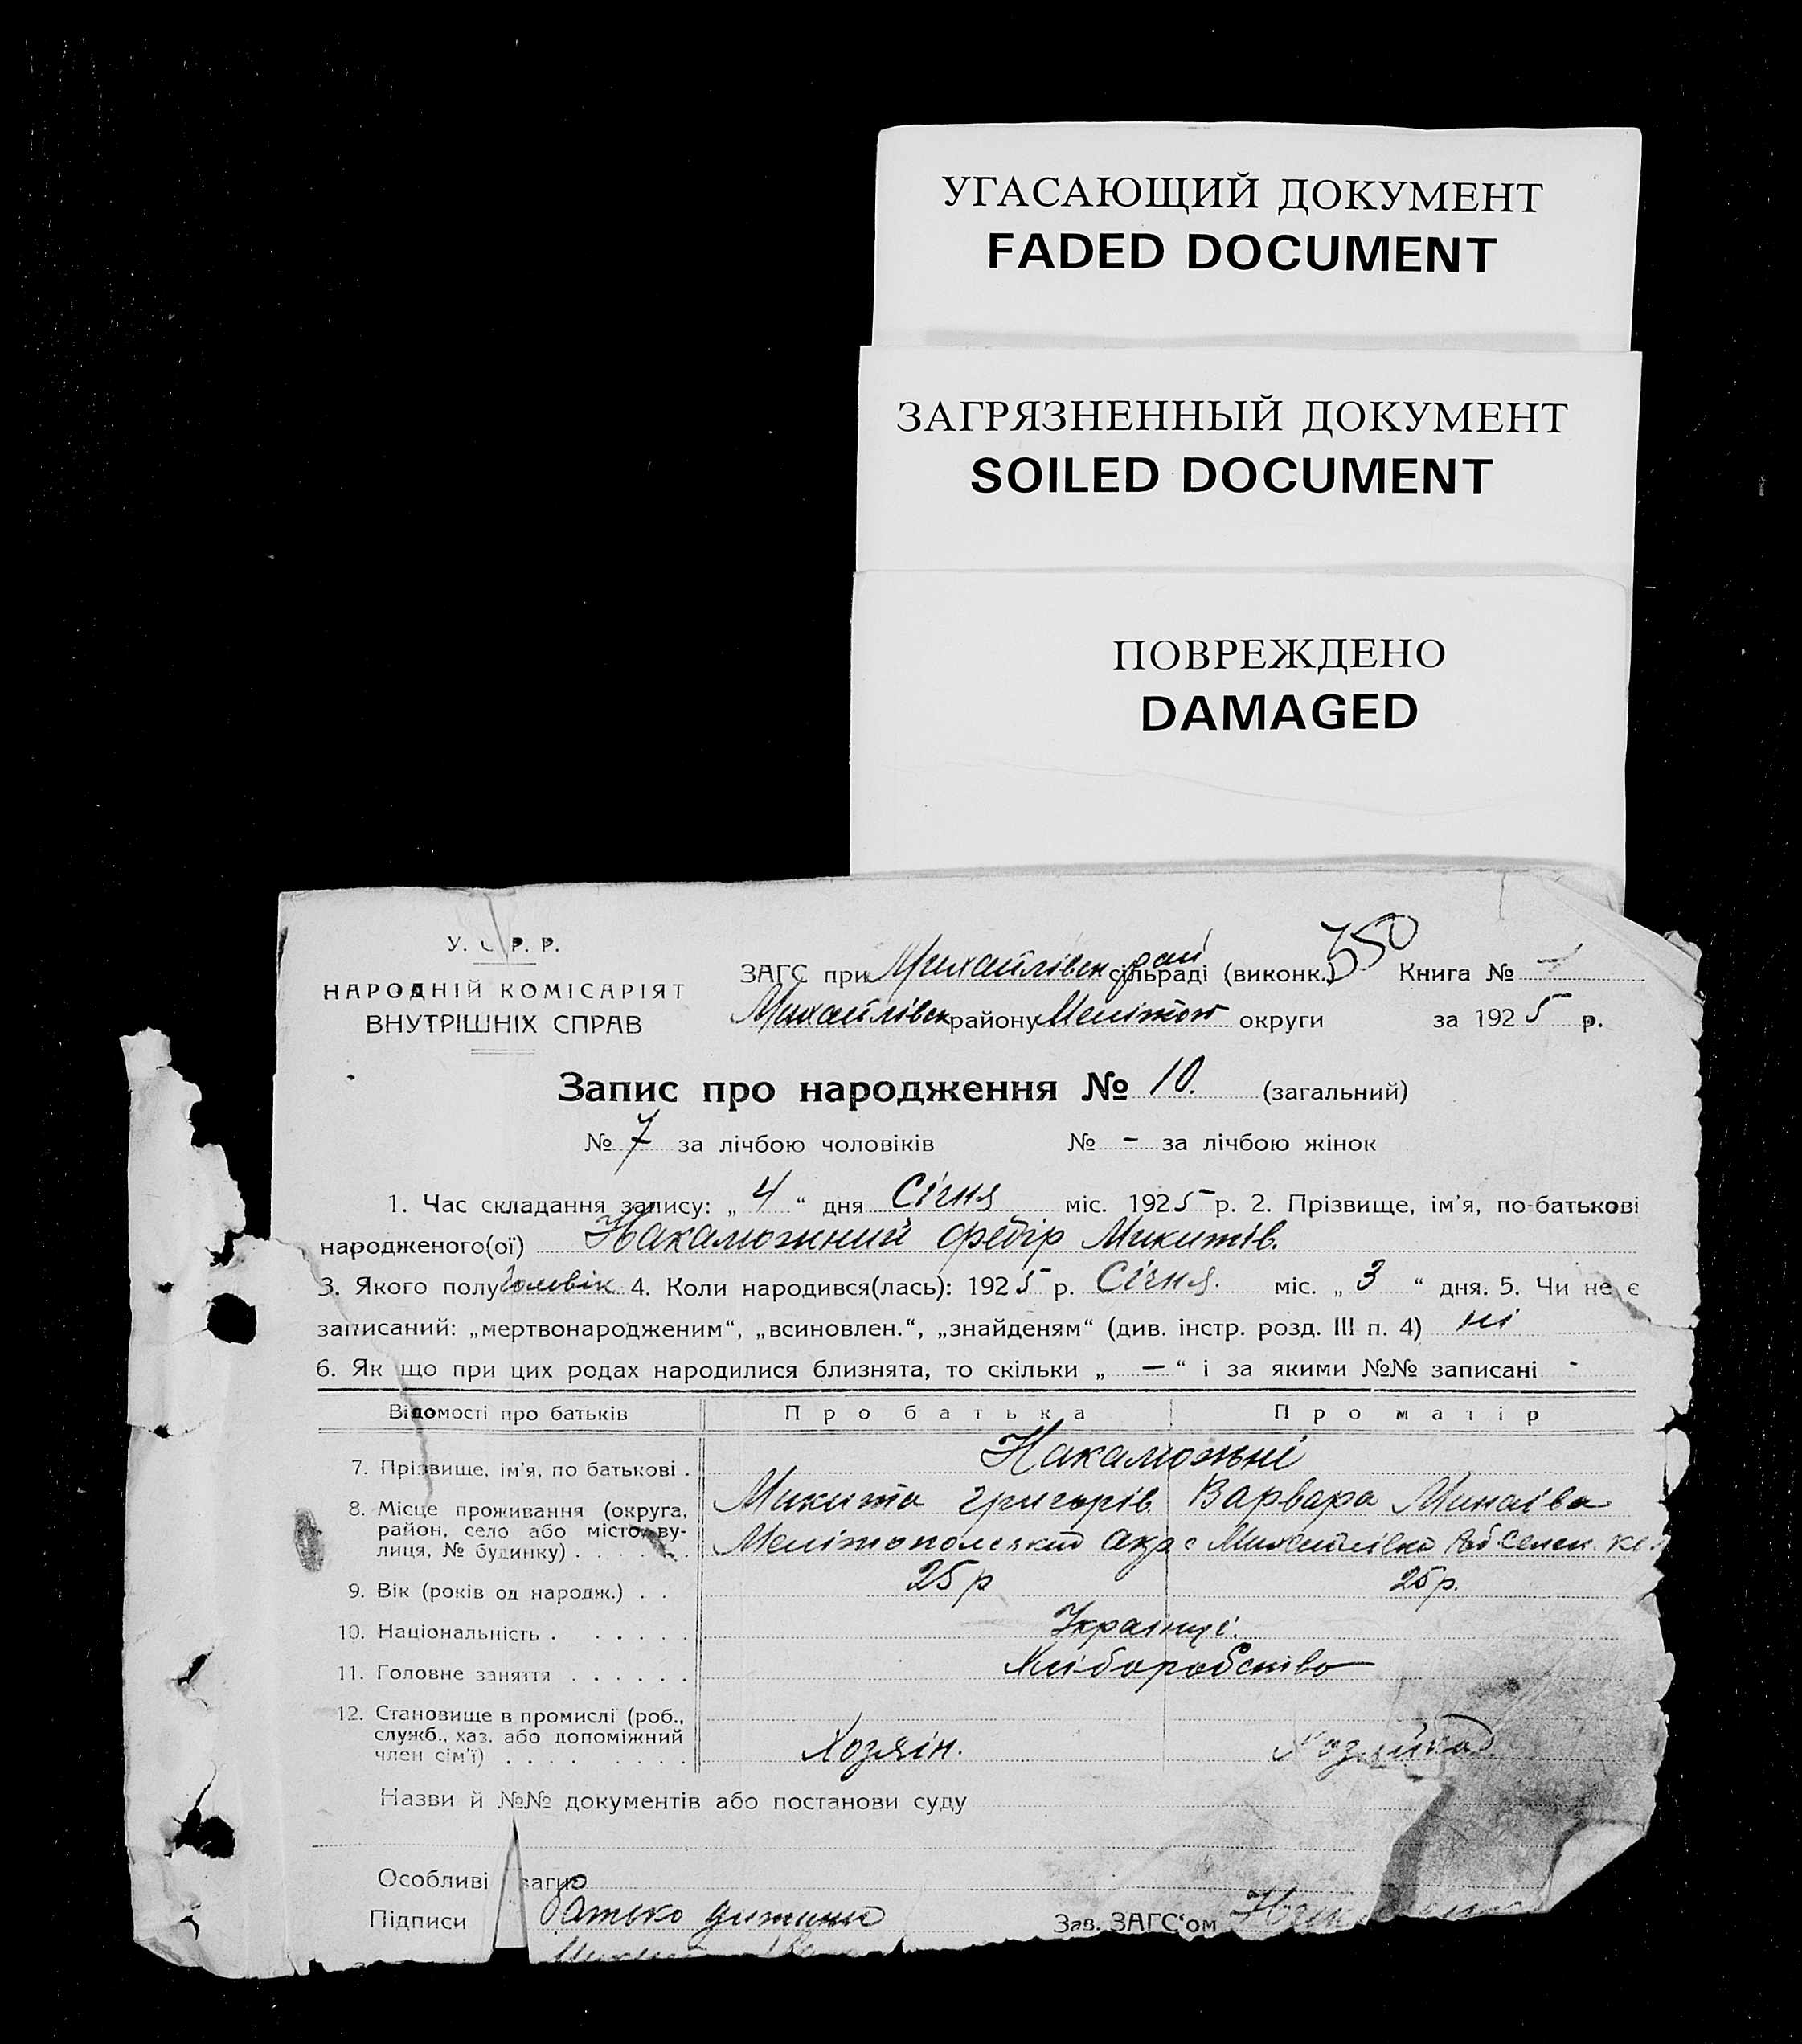 УГАСАЮЩИЙ ДОКУМЕНТ
FADED DOCUMENT
ЗАГРЯЗНЕННЫЙ ДОКУМЕНТ
SOILED DOCUMENT
ПОВРЕЖДЕНО
DAMAGED
У. С. Р. Р.
НАРОДНІЙ КОМІСАРІЯТ
ВНУТРІШНІХ СПРАВ
350
ЗАГС при Михайлівск рай сільраді (виконк.) Книга №
Михайлівск району Меліпоп округи за 1925 р.
Запис про народження № 10. (загальний)
№ 7 за лічбою чоловіків № - за лічбою жінок
1. Час складання запису: „ 4 “ дня Січня міс. 1925 р. 2. Прізвище, ім'я, по-батькові
народженого(ої) Накалюжний Федір Микитів.
3. Якого полу Чоловік 4. Коли народився(лась): 1925 р. Січня. міс. „ 3 “ дня. 5. Чи не є
записаний: „мертвонародженим“, „всиновлен.“, „знайденям“ (див. інстр. розд. III п. 4) ні
6. Як що при цих родах народилися близнята, то скільки „ — “ і за якими №№ записані -
Відомості про батьків Про батька Про матір
Накалюжні
7. Прізвище, ім'я, по батькові . Микита Григорів Варвара Минаіва
8. Місце проживання (округа,
район, село або місто, ву-
лиця, № будинку) . . . . . . Мелітопольский окр с Михайлівка
9. Вік (років од народж.) . . 25 р 25 р.
10. Національність . . . . . . Украінці.
11. Головне заняття . . . . . . Хліборобство
12. Становище в промислі (роб.,
служб., хаз. або допоміжний
член сім'ї) . . . . . . . . Хозяін. Хозяйка
Назви й №№ документів або постанови суду
Особливі уваги
Підписи батько дитини Зав. ЗАГС'ом